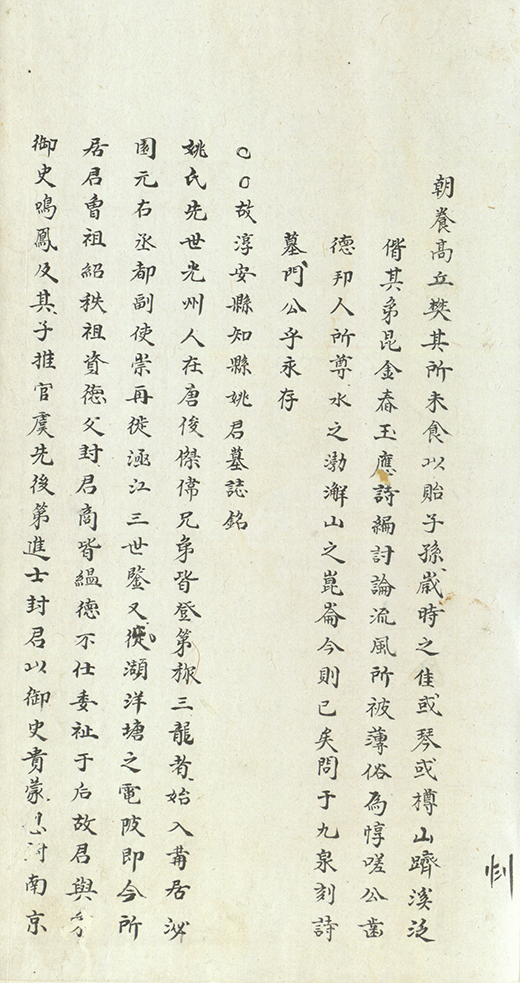 朝養高丘樊其所未食以貽子孫歲時之佳或琴或樽山躋溪泛
偕其弟昆金舂玉應詩編討論流風所被薄俗為惇嗟公齒
德邦人所尊水之渤澥山之崑崙今則已矣問于九泉刻詩
墓門公乎永存
故淳安縣知縣姚君墓誌銘
姚氏先世光州人在唐俊傑偉兄弟皆登第称三龍者始入莆居泌
園元右丞都副使崇再徙涵江三世鑒又徙湖洋塘之電陂即今所
居君魯祖紹秩祖資德父封君商皆緼德不仕委祉于后故君與
御史鳴鳳及其子推官虞先後第進士封君以御史貴蒙 封南京